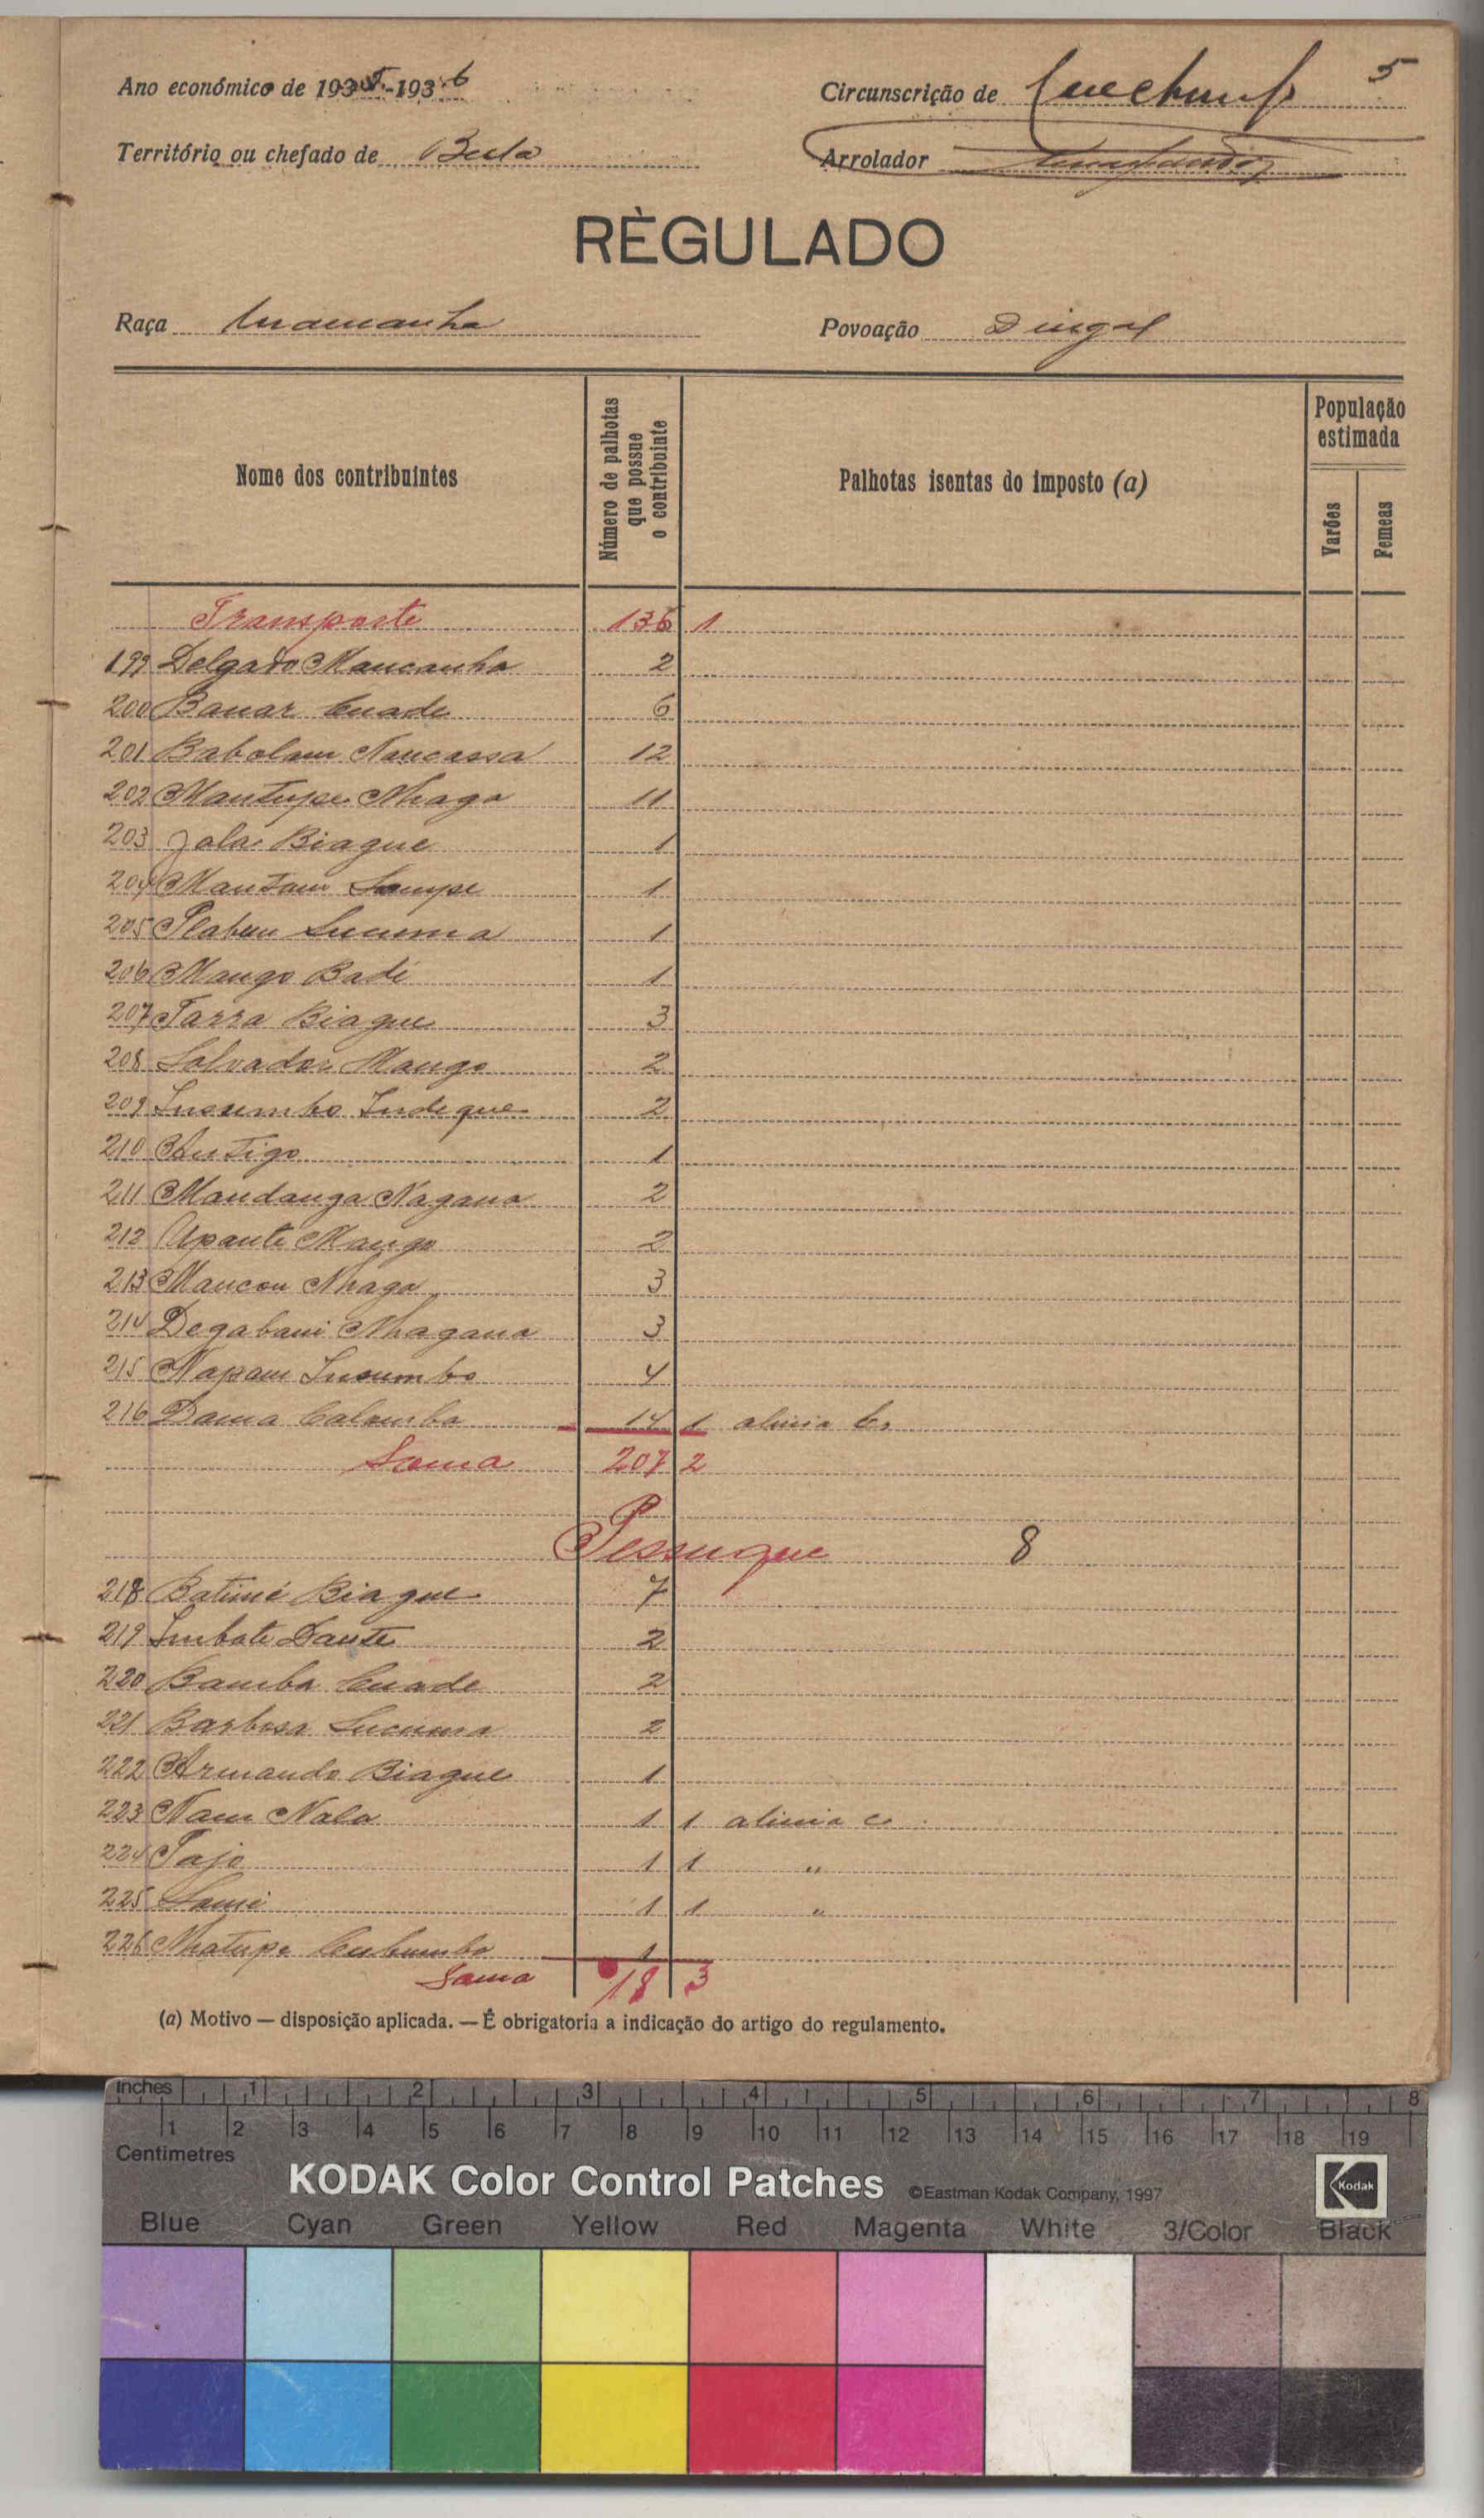 5
Ano económico de 1935-1936
Circunscrição de
Território ou chefado de Bula
Arrolador
RÈGULADO
Raça Mamanha
Povoação Dingal
Nome dos contribuintes
Número de palhotas que possue o contribuinte
Palhotas isentas do imposto (a)
População estimada
Varões
Femeas
Transporte 136 1
199 Delgado Mancanha 2
200 Banar Cuade 6
201 Babolam Naucassa 12
202 Mantupe Nhaga 11
203 Jola Biague 1
204 Mantam Sampe 1
205 Plabun Lucuma 1
206 Mango Badi 1
207 Tarra Biague 3
208 Salvador Mango 2
209 Insumbo Indeque 2
210 Antigo 1
211 Mandanga Nagana 2
212 Upante Mango 2
213 Mancou Nhaga 3
214 Degabani Nhagana 3
215 Napam Insumbo 4
216 Dama Calomba 14 1 alinia b,
Soma 207 2
Pessugue 8
218 Batimé Biague 7
219 Imbate Dante 2
220 Bamba Cuade 2
221 Barbosa Lucuma 2
222 Armando Biague 1
223 Nam Nala 1 1 alinia c
224 Tajo 1 1 "
225 Sami 1 1 "
226 Nhatupe Cubumba 1
Soma 18 3
(a) Motivo — disposição aplicada. — É obrigatoria a indicação do artigo do regulamento.
Inches 1 2 3 4 5 6 7 8
1 2 3 4 5 6 7 8 9 10 11 12 13 14 15 16 17 18 19
Centimetres
KODAK Color Control Patches ©Eastman Kodak Company, 1997 Kodak
Blue Cyan Green Yellow Red Magenta White 3/Color Black